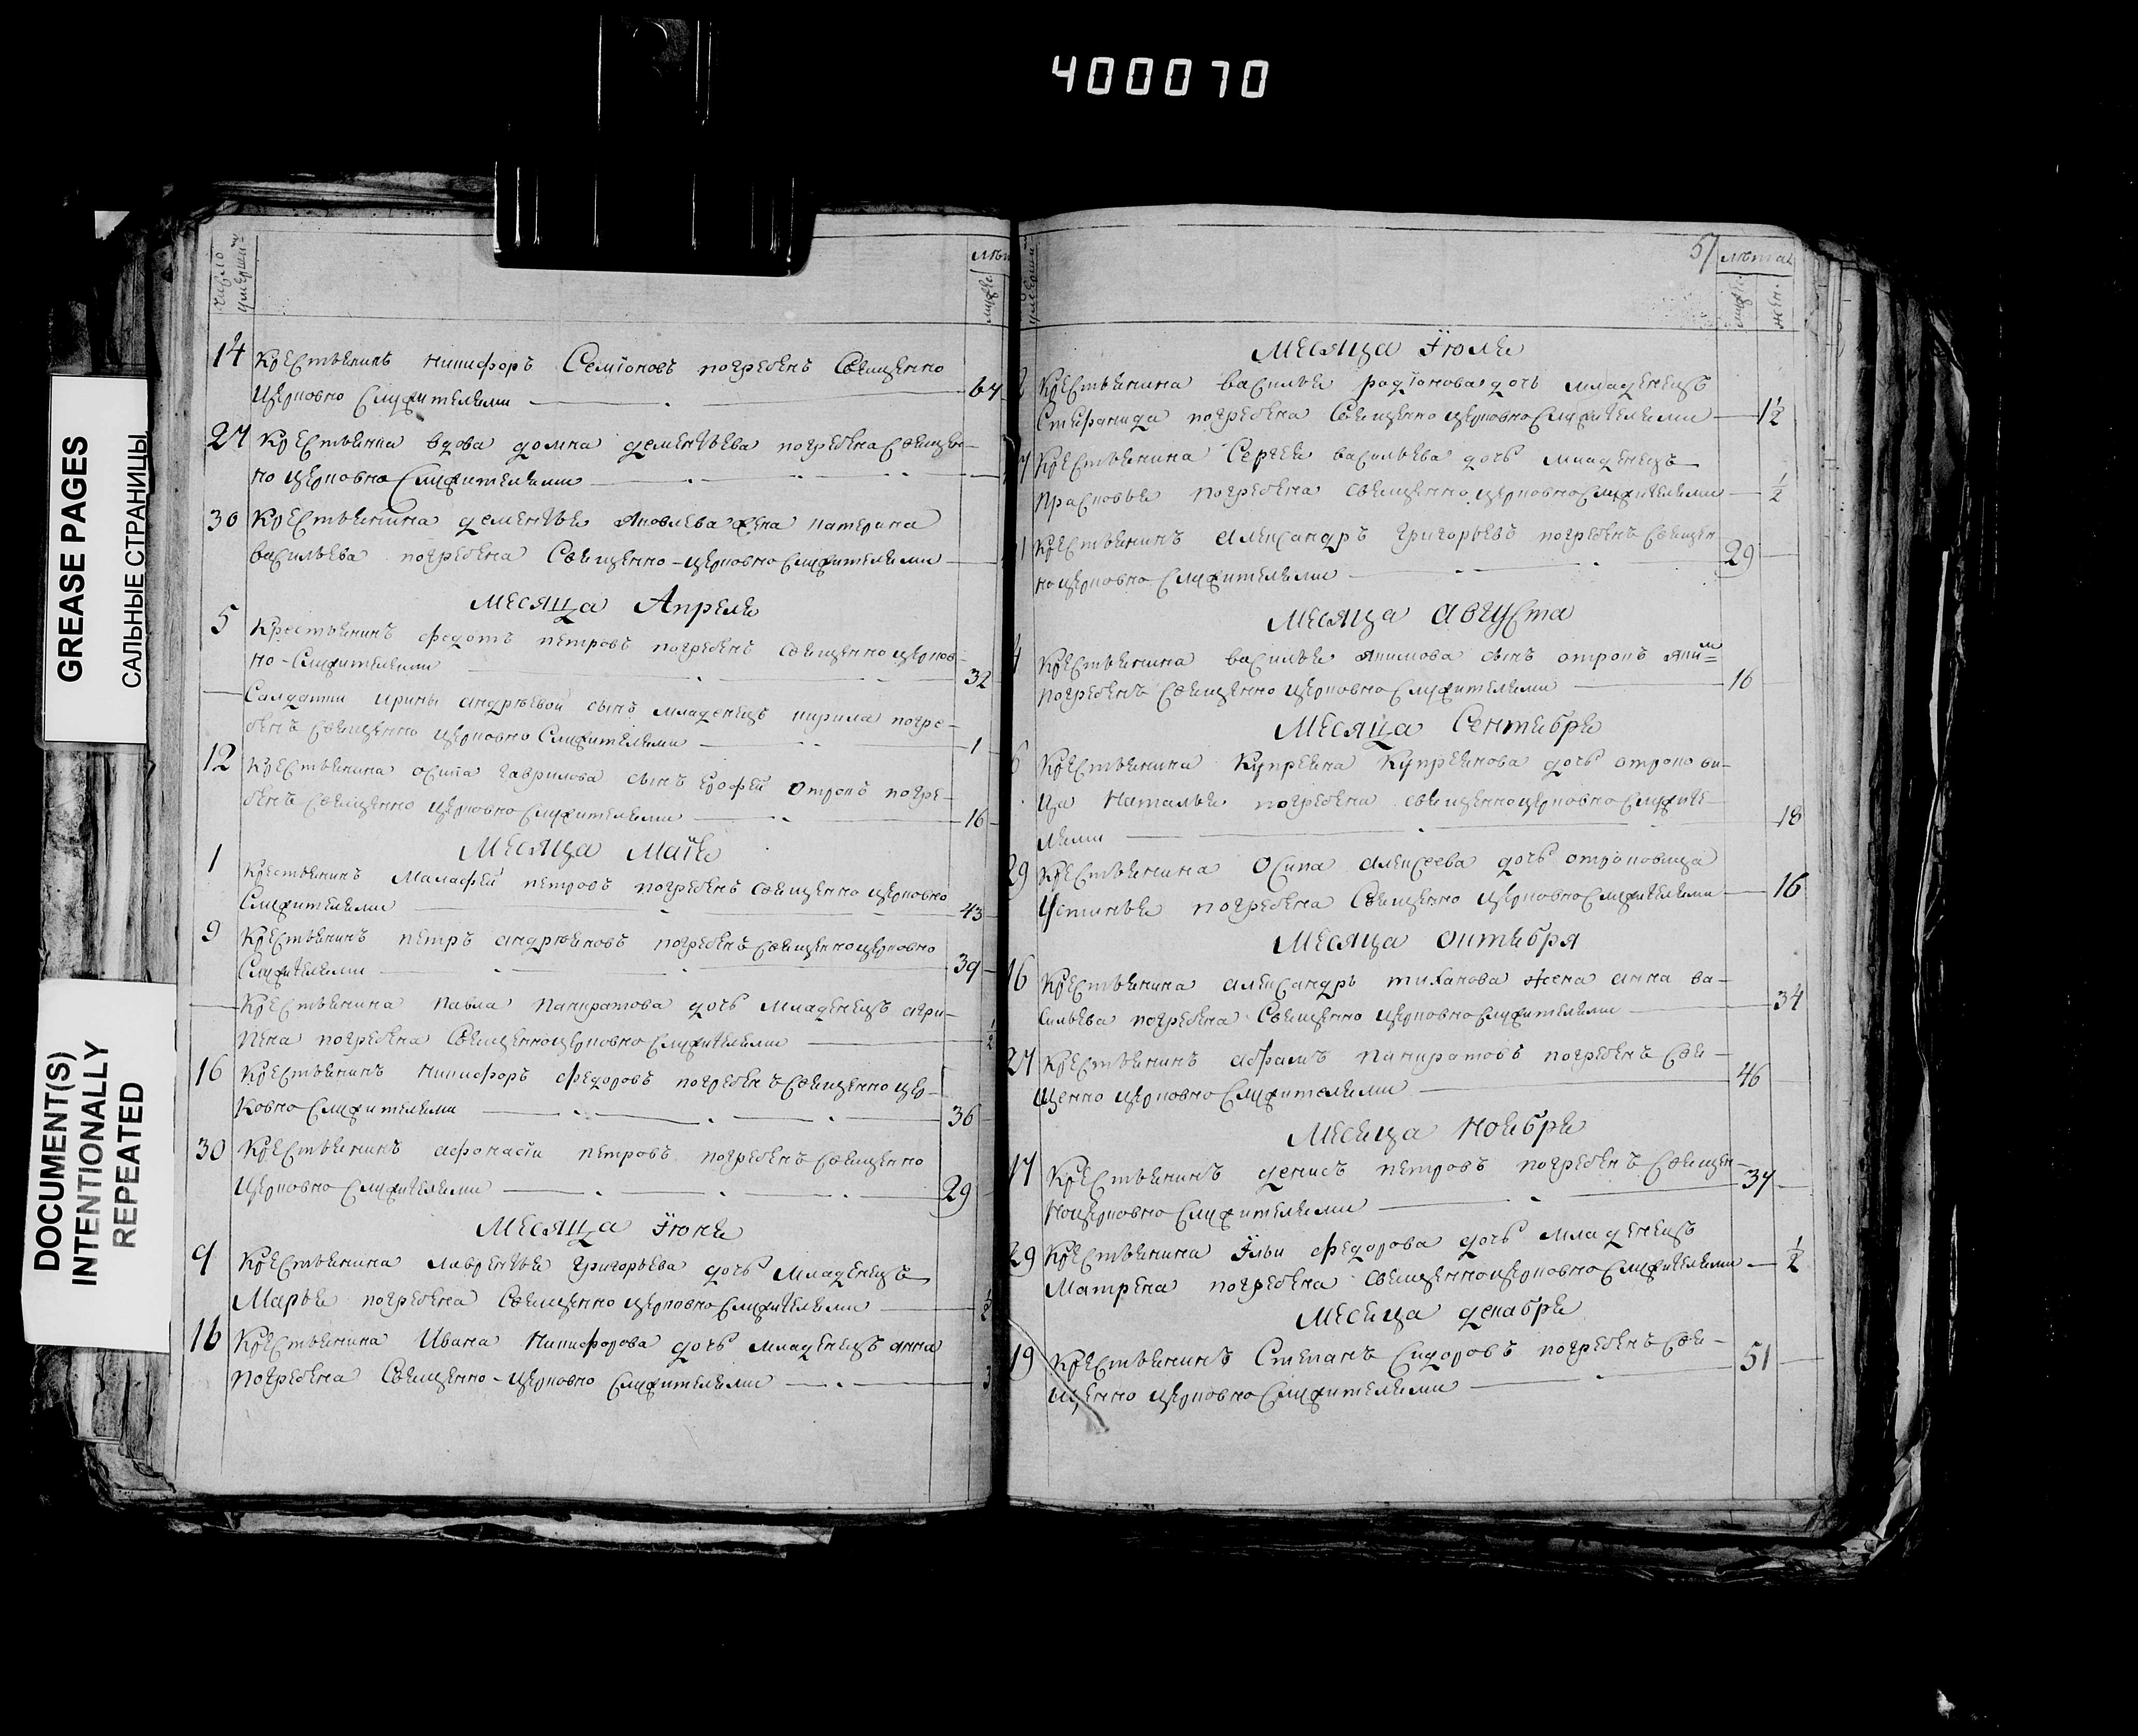 400070
GREASE PAGES
САЛЬНЫЕ СТРАНИЦЫ
DOCUMENT(S)
INTENTIONALLY
REPEATED
число
умерши
лѣт
мужс
14 Крестьянинъ никифоръ Семіоновъ погребенъ Священно
Церковно Служителями 64
27 Крестьянка вдова домна дементьева погребена Священ-
но церковно Служителями
30 Крестьянина дементья яковлева жена катерина
васильева погребена Священно-церковно Служителями
Месяца Апреля
5 Крестьянинъ федотъ петровъ погребенъ священно церков-
но-Служителями 32
Салдатки ирины андрѣевой сынъ младенецъ кирила погре-
бенъ священно церковно Служителями 1
12 Крестьянина осипа гаврилова сынъ ерофей отрокъ погре-
бенъ священно церковно Служителями 16
Месяца Маія
1 Крестьянинъ Малафей петровъ погребенъ священно церковно
Служителями 43
9 Крестьянинъ петръ андрѣяновъ погребенъ священно церковно
Служителями 39
Крестьянина павла панкратова дочь младенецъ агри-
пена погребена Священно церковно Служителями 1/2
16 Крестьянинъ никифоръ федоровъ погребенъ Священно цер-
ковно Служителями 36
30 Крестьянинъ афонасіи петровъ погребенъ священно
Церковно Служителями 29
Месяца Iюня
9 Крестьянина лаврентья григорьева дочь младенецъ
Марья погребена Священно церковно Служителями 1/2
16 Крестьянина Ивана Никифорова дочь младенецъ анна
погребена Священно-церковно Служителями 3
57
лѣта
мужс
жен.
Месяца Iюля
2 Крестьянина василья радіонова дочь младенецъ
Стифанида погребена Священно церковно Служителями 1 1/2
7 Крестьянина Сергея васильева дочь младенецъ
прасковья погребена священно церковно Служителями 1/2
1 Крестьянинъ александръ григорьевъ погребенъ священ
но церковно Служителями 29
Месяца августа
4 Крестьянина василья якимова сынъ отрокъ яким
погребенъ Священно церковно Служителями 16
Месяца Сентября
6 Крестьянина Купреяна Купреянова дочь отрокови-
ца Наталья погребена священно церковно Служите-
лями 18
29 Крестьянина Осипа алексеева дочь отроковица
Устинья погребена Священно церковно Служителями 16
Месяца октября
16 Крестьянина александръ тиханова жена анна ва-
сильева погребена Священно церковно Служителями 34
27 Крестьянинъ абрамъ панкратовъ погребенъ Свя-
щенно церковно Служителями 46
Месяца Ноября
17 Крестьянинъ денисъ петровъ погребенъ священ-
но церковно Служителями 37
29 Крестьянина Iльи федорова дочь младенецъ
Матрена погребена священно церковно Служителями 1/2
Месяца декабря
19 Крестьянинъ Степанъ Сидоровъ погребенъ Свя-
щенно церковно Служителями 51